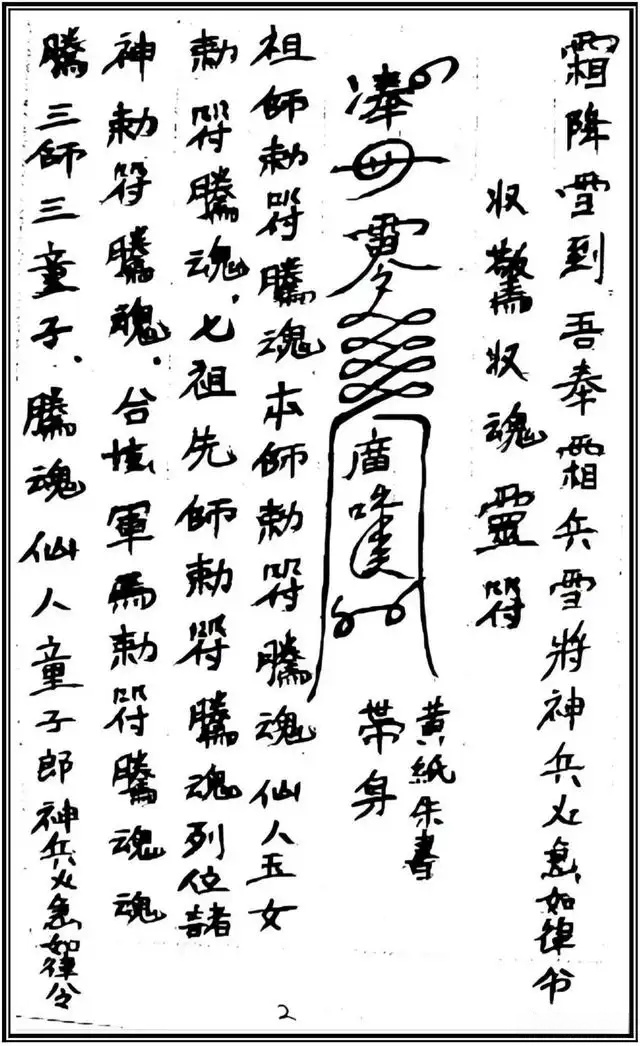 霜降雪到吾奉霜兵雪將神兵火急如律令
収驚収魂靈符
黃紙朱書
帶身
祖師勅符騰魂本師勅符騰魂仙人玉女
勅符騰魂、七祖先師勅符騰魂列位諸
神勅符騰魂、台軍馬勅符騰魂魂
騰三師三童子、騰魂仙人童子郎神兵火急如律令
2